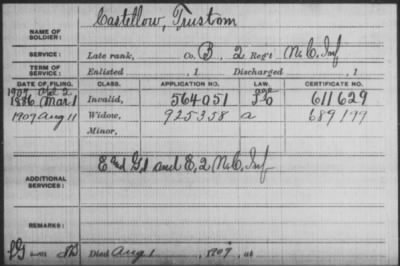 Castellow, Trustom
NAME OF SOLDIER:
SERVICE: Late rank, Co. B, 2 Reg't N.C. Inf
TERM OF SERVICE: Enlisted , 1 Discharged , 1
DATE OF FILING. CLASS. APPLICATION NO. CERTIFICATE NO.
1907
1886 Mar 1 Invalid, 564051 611629
1907 Aug 11 Widow, 925358 a 689199
Minor,
ADDITIONAL SERVICES: and E, 2 N.C. Inf
REMARKS:
Died Aug 1 , 1907, at